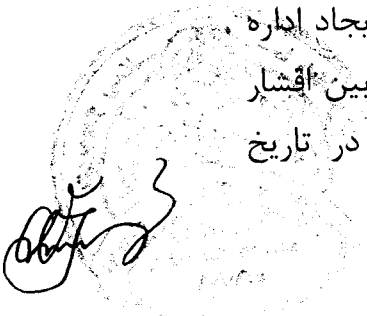 یجاد اداره
بین اقشار
در تاریخ